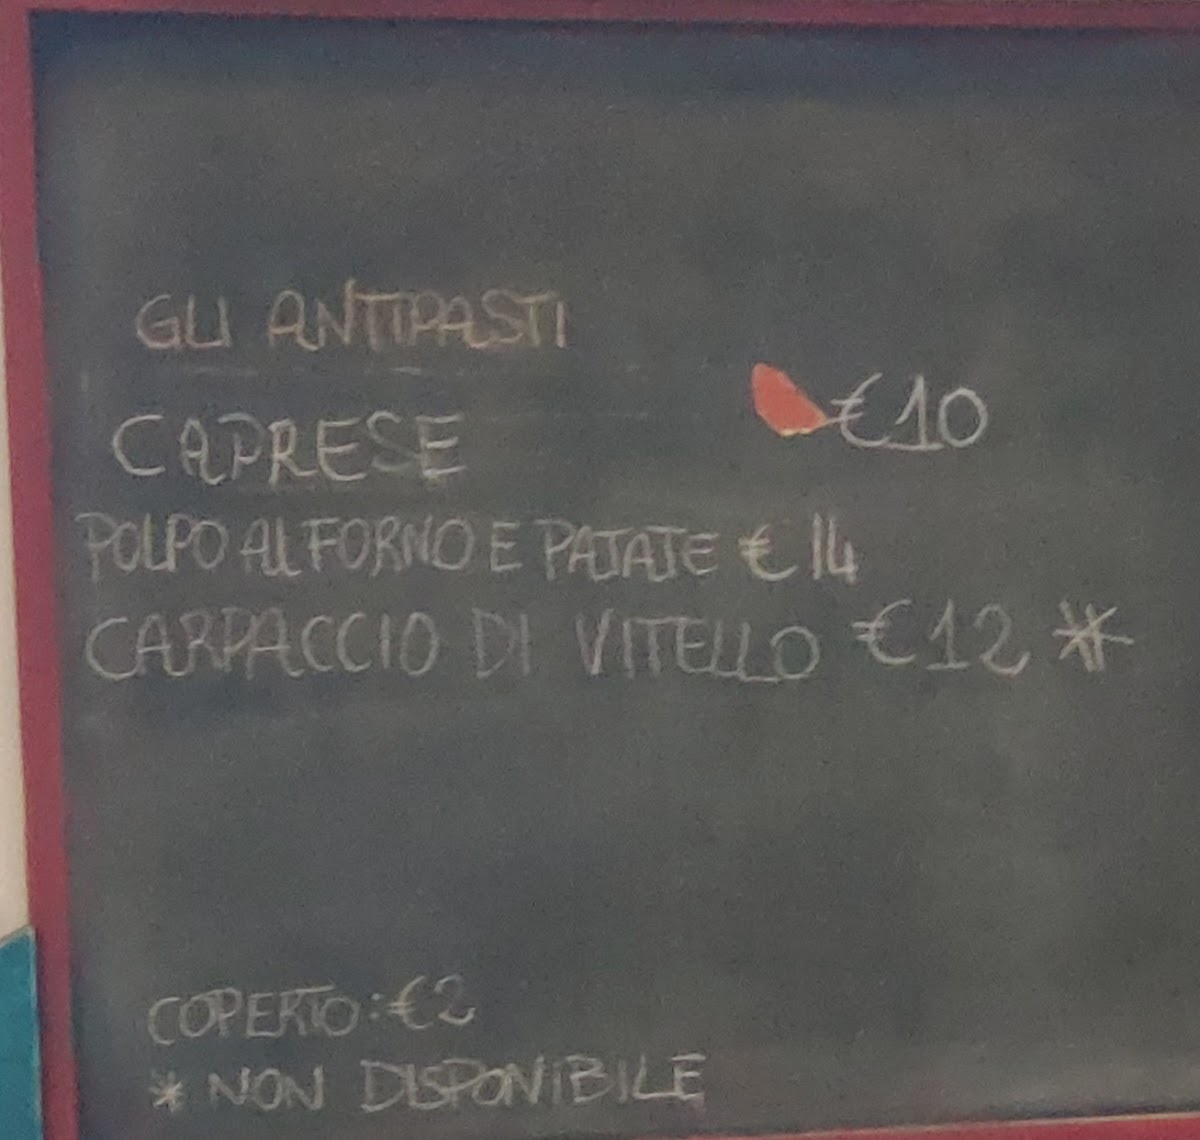 GLI ANTIPASTI
CAPRESE €10
POLPO AL FORNO E PATATE € 14
CARPACCIO DI VITELLO €12 *
COPERTO: €2
* NON DISPONIBILE